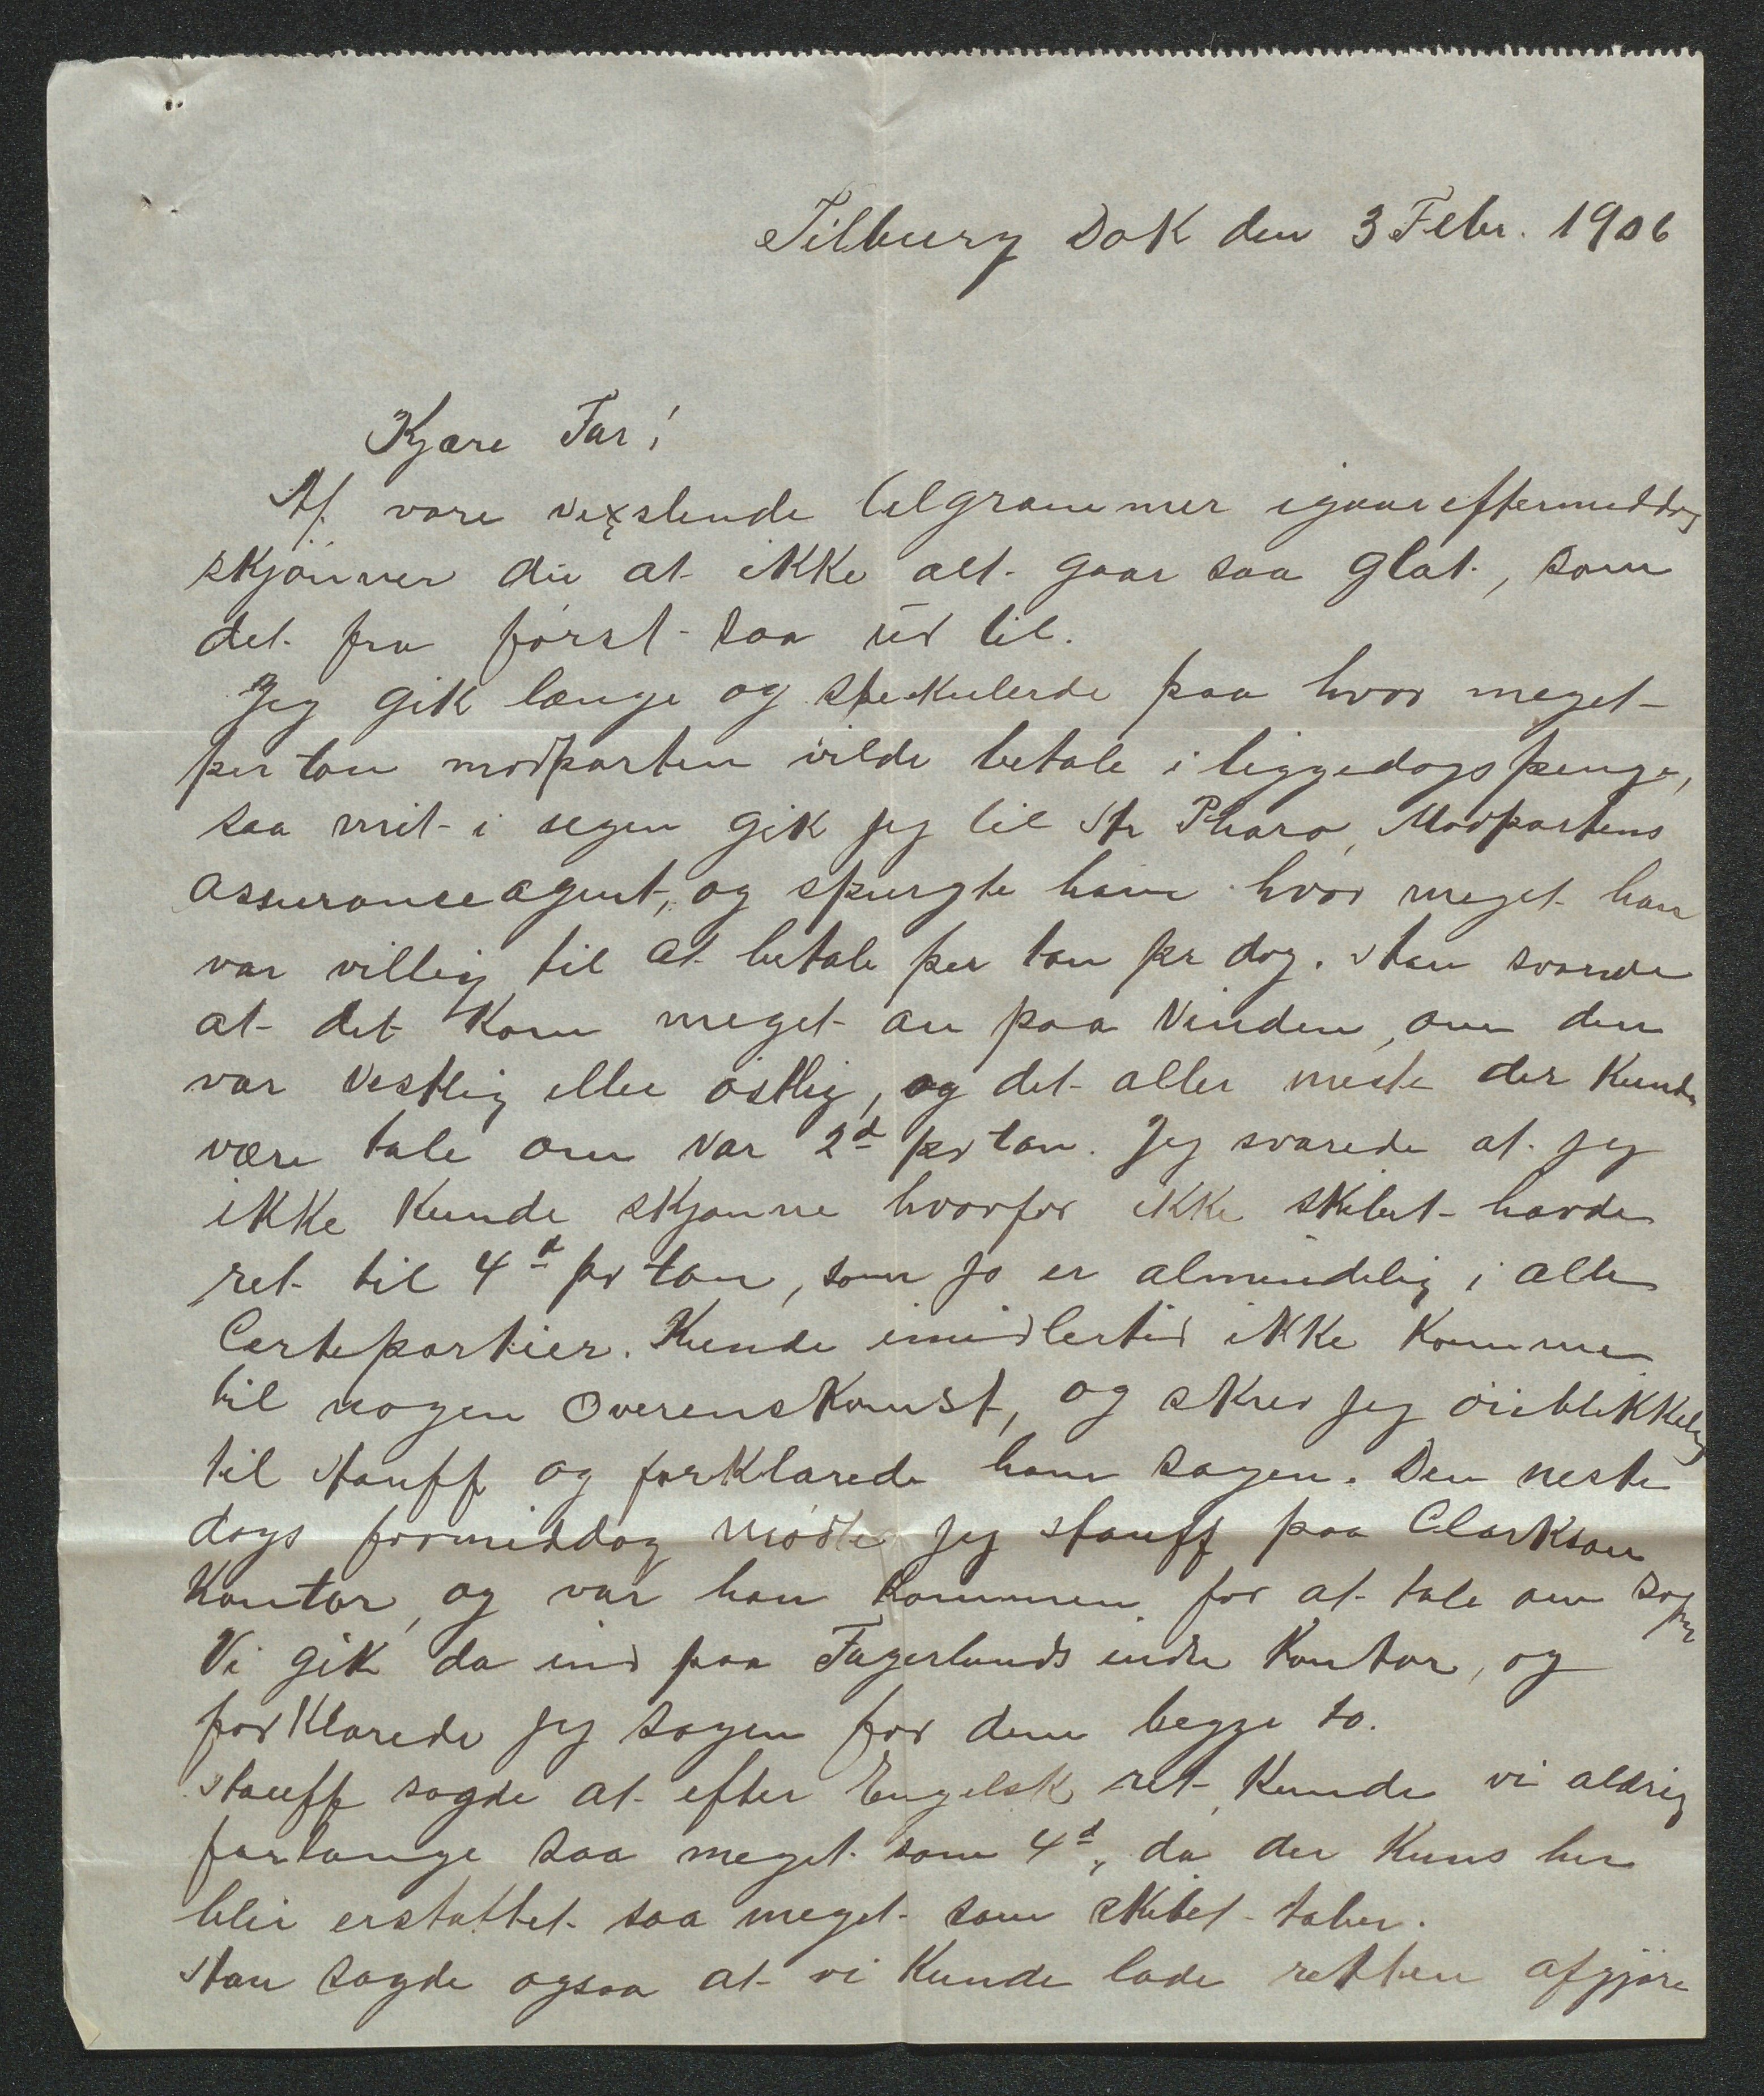 Tilbury Dok den 3 Febr. 1906
Kjære Far!
Af vore vexslende telgrammer igaar eftermiddag
skjönner du at ikke alt gaar saa glat, som
det fra först saa ud til.
Jeg gik længe og spekulerde paa hvor meget
per ton modparten vilde betale i liggedagspenge,
saa mit i ugen gik jeg til Hr Pharo, Modpartens
assuranceagent, og spurgte ham hvor meget han
var villig til at betale per ton pr dag. Han svarede
at det kom meget an paa Vinden, om den
var vestlig eller östlig, og det aller meste der kunde
være tale om var 2d pr ton. Jeg svarede at jeg
ikke kunde skjønne hvorfor ikke skibet havde
ret til 4d pr ton, som jo er almindelig i alle
Certepartier. Kunde imidlertid ikke komme
til nogen Overenskomst, og skrev jeg öieblikkelig
til Hauff og forklarede ham sagen. Den neste
dags formiddag mödte jeg Hauff paa Clarkson
Kontor, og var han kommen for at tale om sagen
Vi gik da ind paa Fagerlunds indre Kontor, og
forklarede jeg sagen for dem begge to.
Hauff sagde at efter Engelsk ret kunde vi aldrig
forlange saa meget som 4d, da der kuns her
blir erstattet saa meget som skibet taber.
Han sagde ogsaa at vi kunde lade retten afgjøre